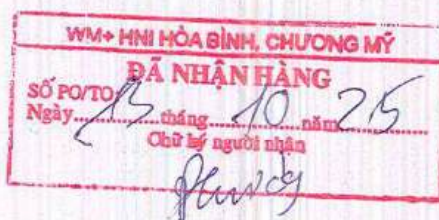 WM+ HNI HÒA BÌNH, CHƯƠNG MỸ
ĐÃ NHẬN HÀNG
SỐ PO/TO
Ngày 13 tháng 10 năm 25
Chữ ký người nhận